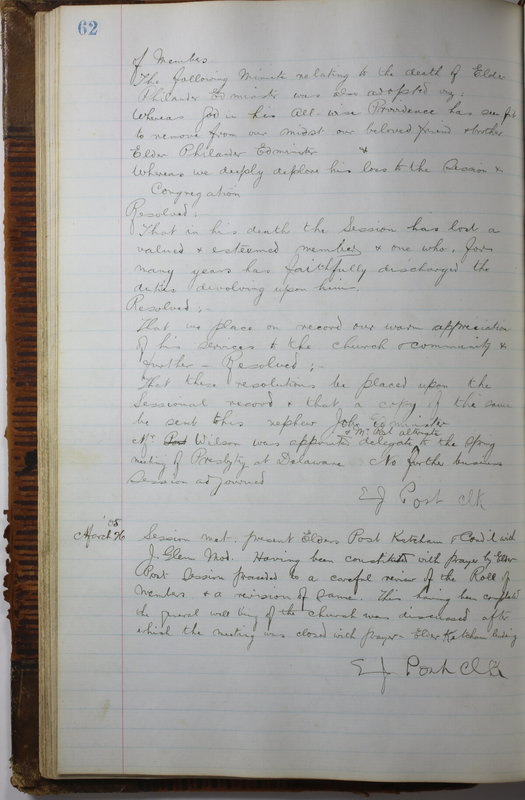 62
of Members
The following Minute relating to the death of Elder
Philander Edminster was also adopted viz:
Whereas God in his All-wise Providence has see fit
to remove from our midst our beloved friend & brother
Elder Philander Edminster &
Whereas we deeply deplore his loss to the Session &
Congregation
Resolved:
That in his death the Session has lost a
valued & esteemed member & one who, for
many years has faithfully discharged the
duties devolving upon him.
Resolved:-
That we place on record our warm appreciation
of his services to the church & community &
further - Resolved:-
That these resolutions be placed upon the
Sessional record & that a copy of the same
be sent to his nephew John Edminister
& Mr Post alternate
Mr Post Wilson was appointed delegate to the Spring
meeting of Presbytry at Delaware No further business
Session adjourned
E J Post Clk
'05
March 26 Session met. present Elders Post Ketcham & with
J. Glenn Mod. Having been constituted with prayer by Elder
Post Session proceeded to a careful review of the Roll of
Members. & a revision of same. This having been completed
the general well being of the church was discussed after
which the meeting was closed with prayer - Elder Ketcham leading
E J Post Clk